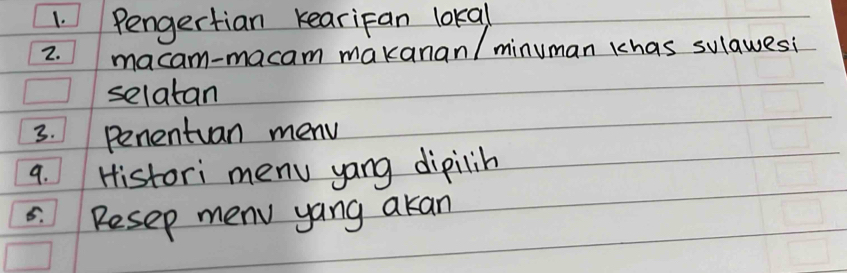 1. Pengertian kearifan lokal
2. macam-macam makanan/minuman khas sulawesi
selatan
3. Penentuan menu
4. Histori menu yang dipilih
5. Resep menu yang akan